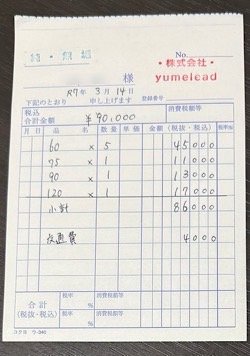 No.
株式会社
yumelead
様
R7年 3月 14日
下記のとおり 申し上げます 登録番号
税込
合計金額 ¥90,000 消費税額等
月 日 品 名 数 量 単 価 金額(税抜・税込)
60 × 5 45000
75 × 1 11000
90 × 1 13000
120 × 1 17000
小計 86000
交通費 4000
合計
(税抜・税込) 税率 % 消費税額等
税率 % 消費税額等
コクヨ ウ-340